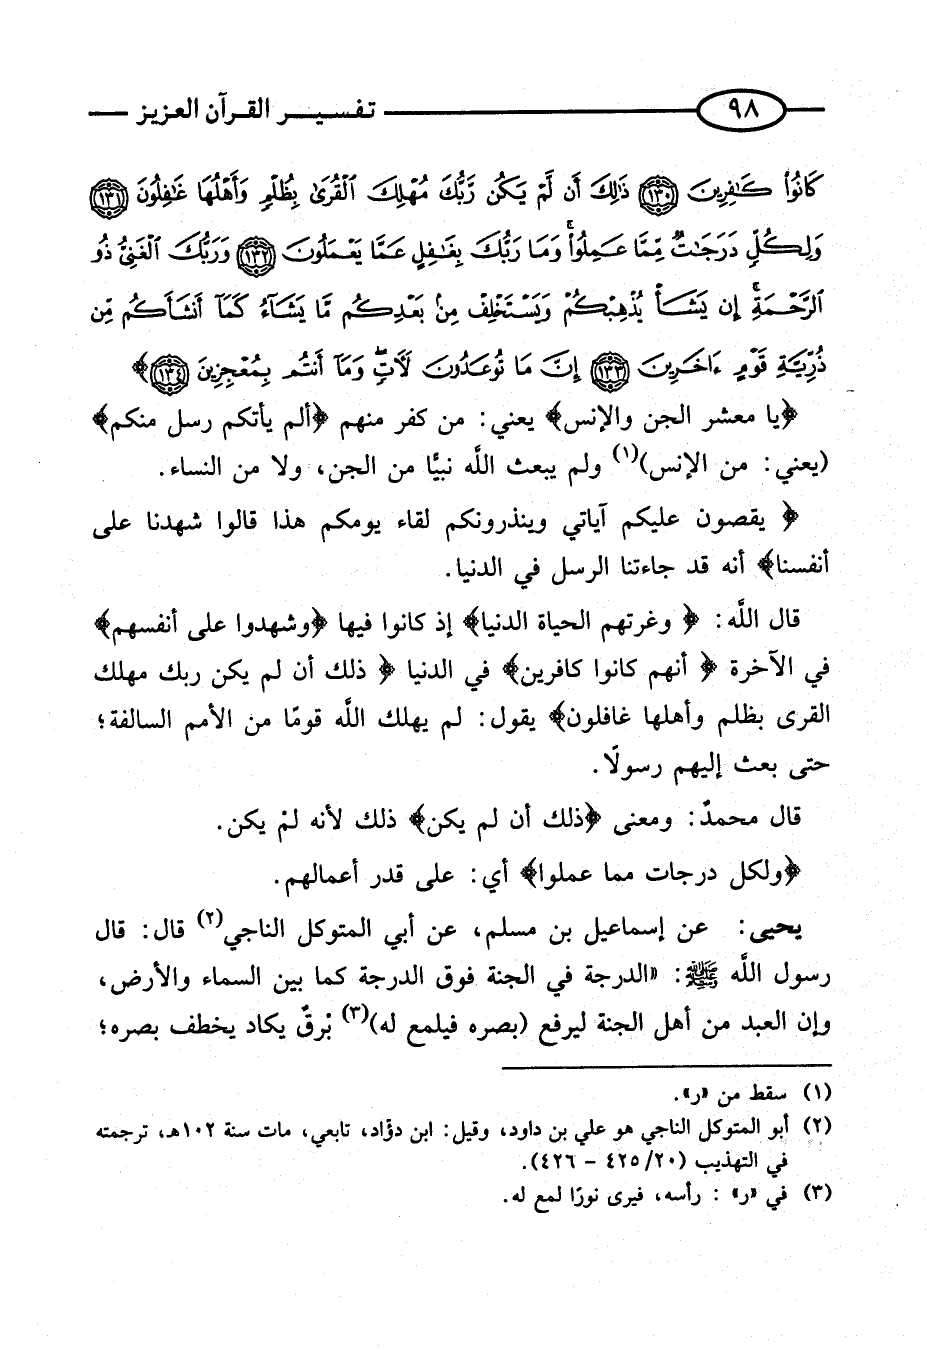 ٩٨ تفسير القرآن العزيز
كَانُوا۟ كَـٰفِرِينَ ١٣٠ ذَٰلِكَ أَن لَّمْ يَكُن رَّبُّكَ مُهْلِكَ ٱلْقُرَىٰ بِظُلْمٍ وَأَهْلُهَا غَـٰفِلُونَ ١٣١
وَلِكُلٍّ دَرَجَـٰتٌ مِّمَّا عَمِلُوا۟ ۚ وَمَا رَبُّكَ بِغَـٰفِلٍ عَمَّا يَعْمَلُونَ ١٣٢ وَرَبُّكَ ٱلْغَنِىُّ ذُو
ٱلرَّحْمَةِ ۚ إِن يَشَأْ يُذْهِبْكُمْ وَيَسْتَخْلِفْ مِنۢ بَعْدِكُم مَّا يَشَآءُ كَمَآ أَنشَأَكُم مِّن
ذُرِّيَّةِ قَوْمٍ ءَاخَرِينَ ١٣٣ إِنَّ مَا تُوعَدُونَ لَـَٔاتٍ ۖ وَمَآ أَنتُم بِمُعْجِزِينَ ١٣٤﴾
﴿يا معشر الجن والإنس﴾ يعني: من كفر منهم ﴿ألم يأتكم رسل منكم﴾
(يعني: من الإنس)(١) ولم يبعث اللَّه نبيًّا من الجن، ولا من النساء.
﴿ يقصون عليكم آياتي وينذرونكم لقاء يومكم هذا قالوا شهدنا على
أنفسنا﴾ أنه قد جاءتنا الرسل في الدنيا.
قال اللَّه: ﴿ وغرتهم الحياة الدنيا﴾ إذ كانوا فيها ﴿وشهدوا على أنفسهم﴾
في الآخرة ﴿ أنهم كانوا كافرين﴾ في الدنيا ﴿ ذلك أن لم يكن ربك مهلك
القرى بظلم وأهلها غافلون﴾ يقول: لم يهلك اللَّه قومًا من الأمم السالفة؛
حتى بعث إليهم رسولًا.
قال محمدٌ: ومعنى ﴿ذلك أن لم يكن﴾ ذلك لأنه لمْ يكن.
﴿ولكل درجات مما عملوا﴾ أي: على قدر أعمالهم.
يحيى: عن إسماعيل بن مسلم، عن أبي المتوكل الناجي(٢) قال: قال
رسول اللَّه ﷺ: «الدرجة في الجنة فوق الدرجة كما بين السماء والأرض،
وإن العبد من أهل الجنة ليرفع (بصره فيلمع له)(٣) بْرقٌ يكاد يخطف بصره؛
(١) سقط من «ر».
(٢) أبو المتوكل الناجي هو علي بن داود، وقيل: ابن دؤاد، تابعي، مات سنة ١٠٢هـ، ترجمته
في التهذيب (٢٠/ ٤٢٥ - ٤٢٦).
(٣) في «ر» : رأسه، فيرى نورًا لمع له.